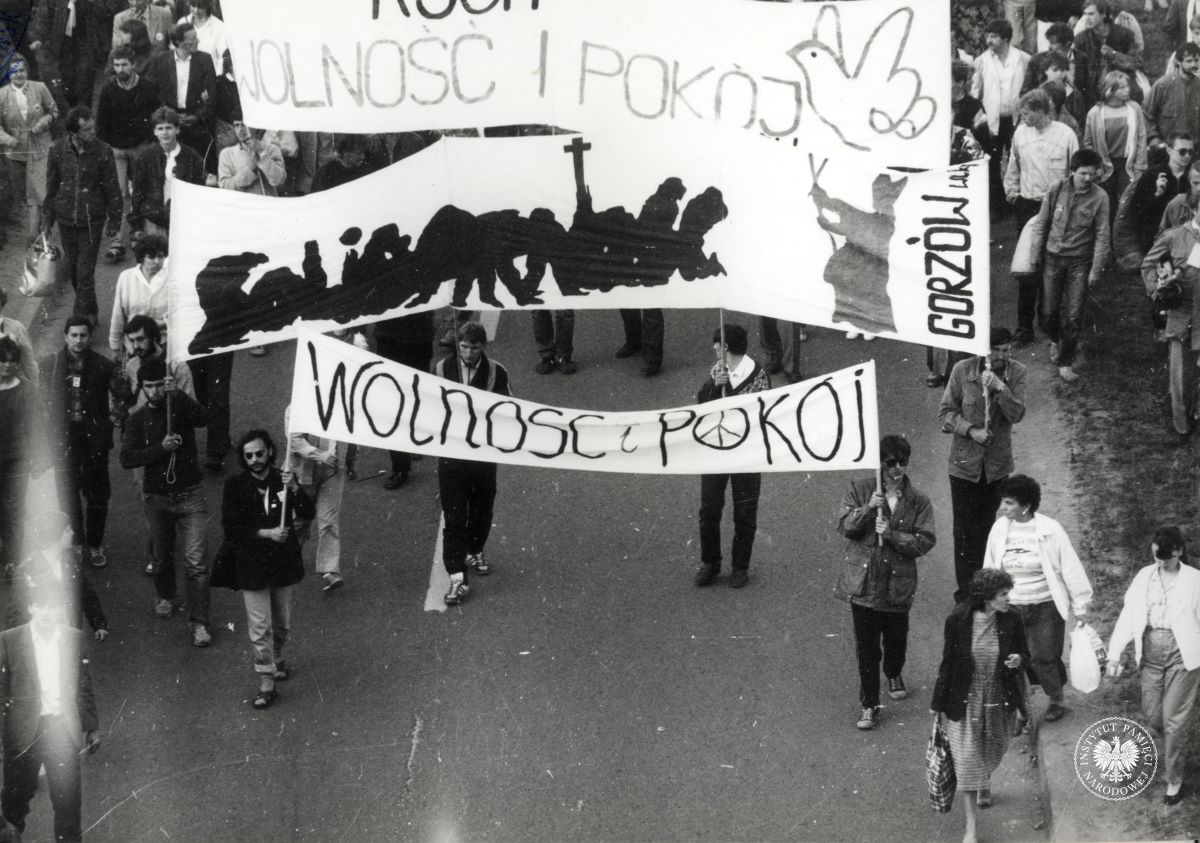 RUCH
WOLNOŚĆ I POKÓJ
GORZÓW WLKP
WOLNOŚĆ i POKÓJ
INSTYTUT PAMIĘCI
NARODOWEJ